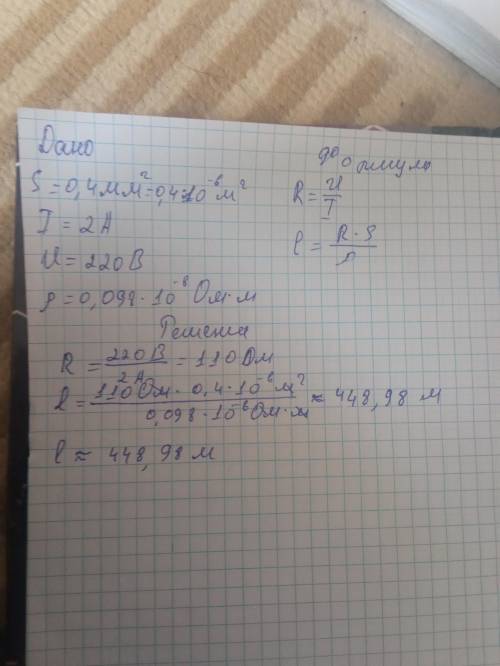 Дано
S = 0,4 мм² = 0,4·10⁻⁶ м²
I = 2 А
U = 220 В
ρ = 0,098 · 10⁻⁶ Ом·м
Формулы
R = U/I
l = R·S/ρ
Решение
R = 220 В/2 А = 110 Ом
l = 110 Ом · 0,4 · 10⁻⁶ м²/0,098 · 10⁻⁶ Ом·м ≈ 448,98 м
l ≈ 448,98 м